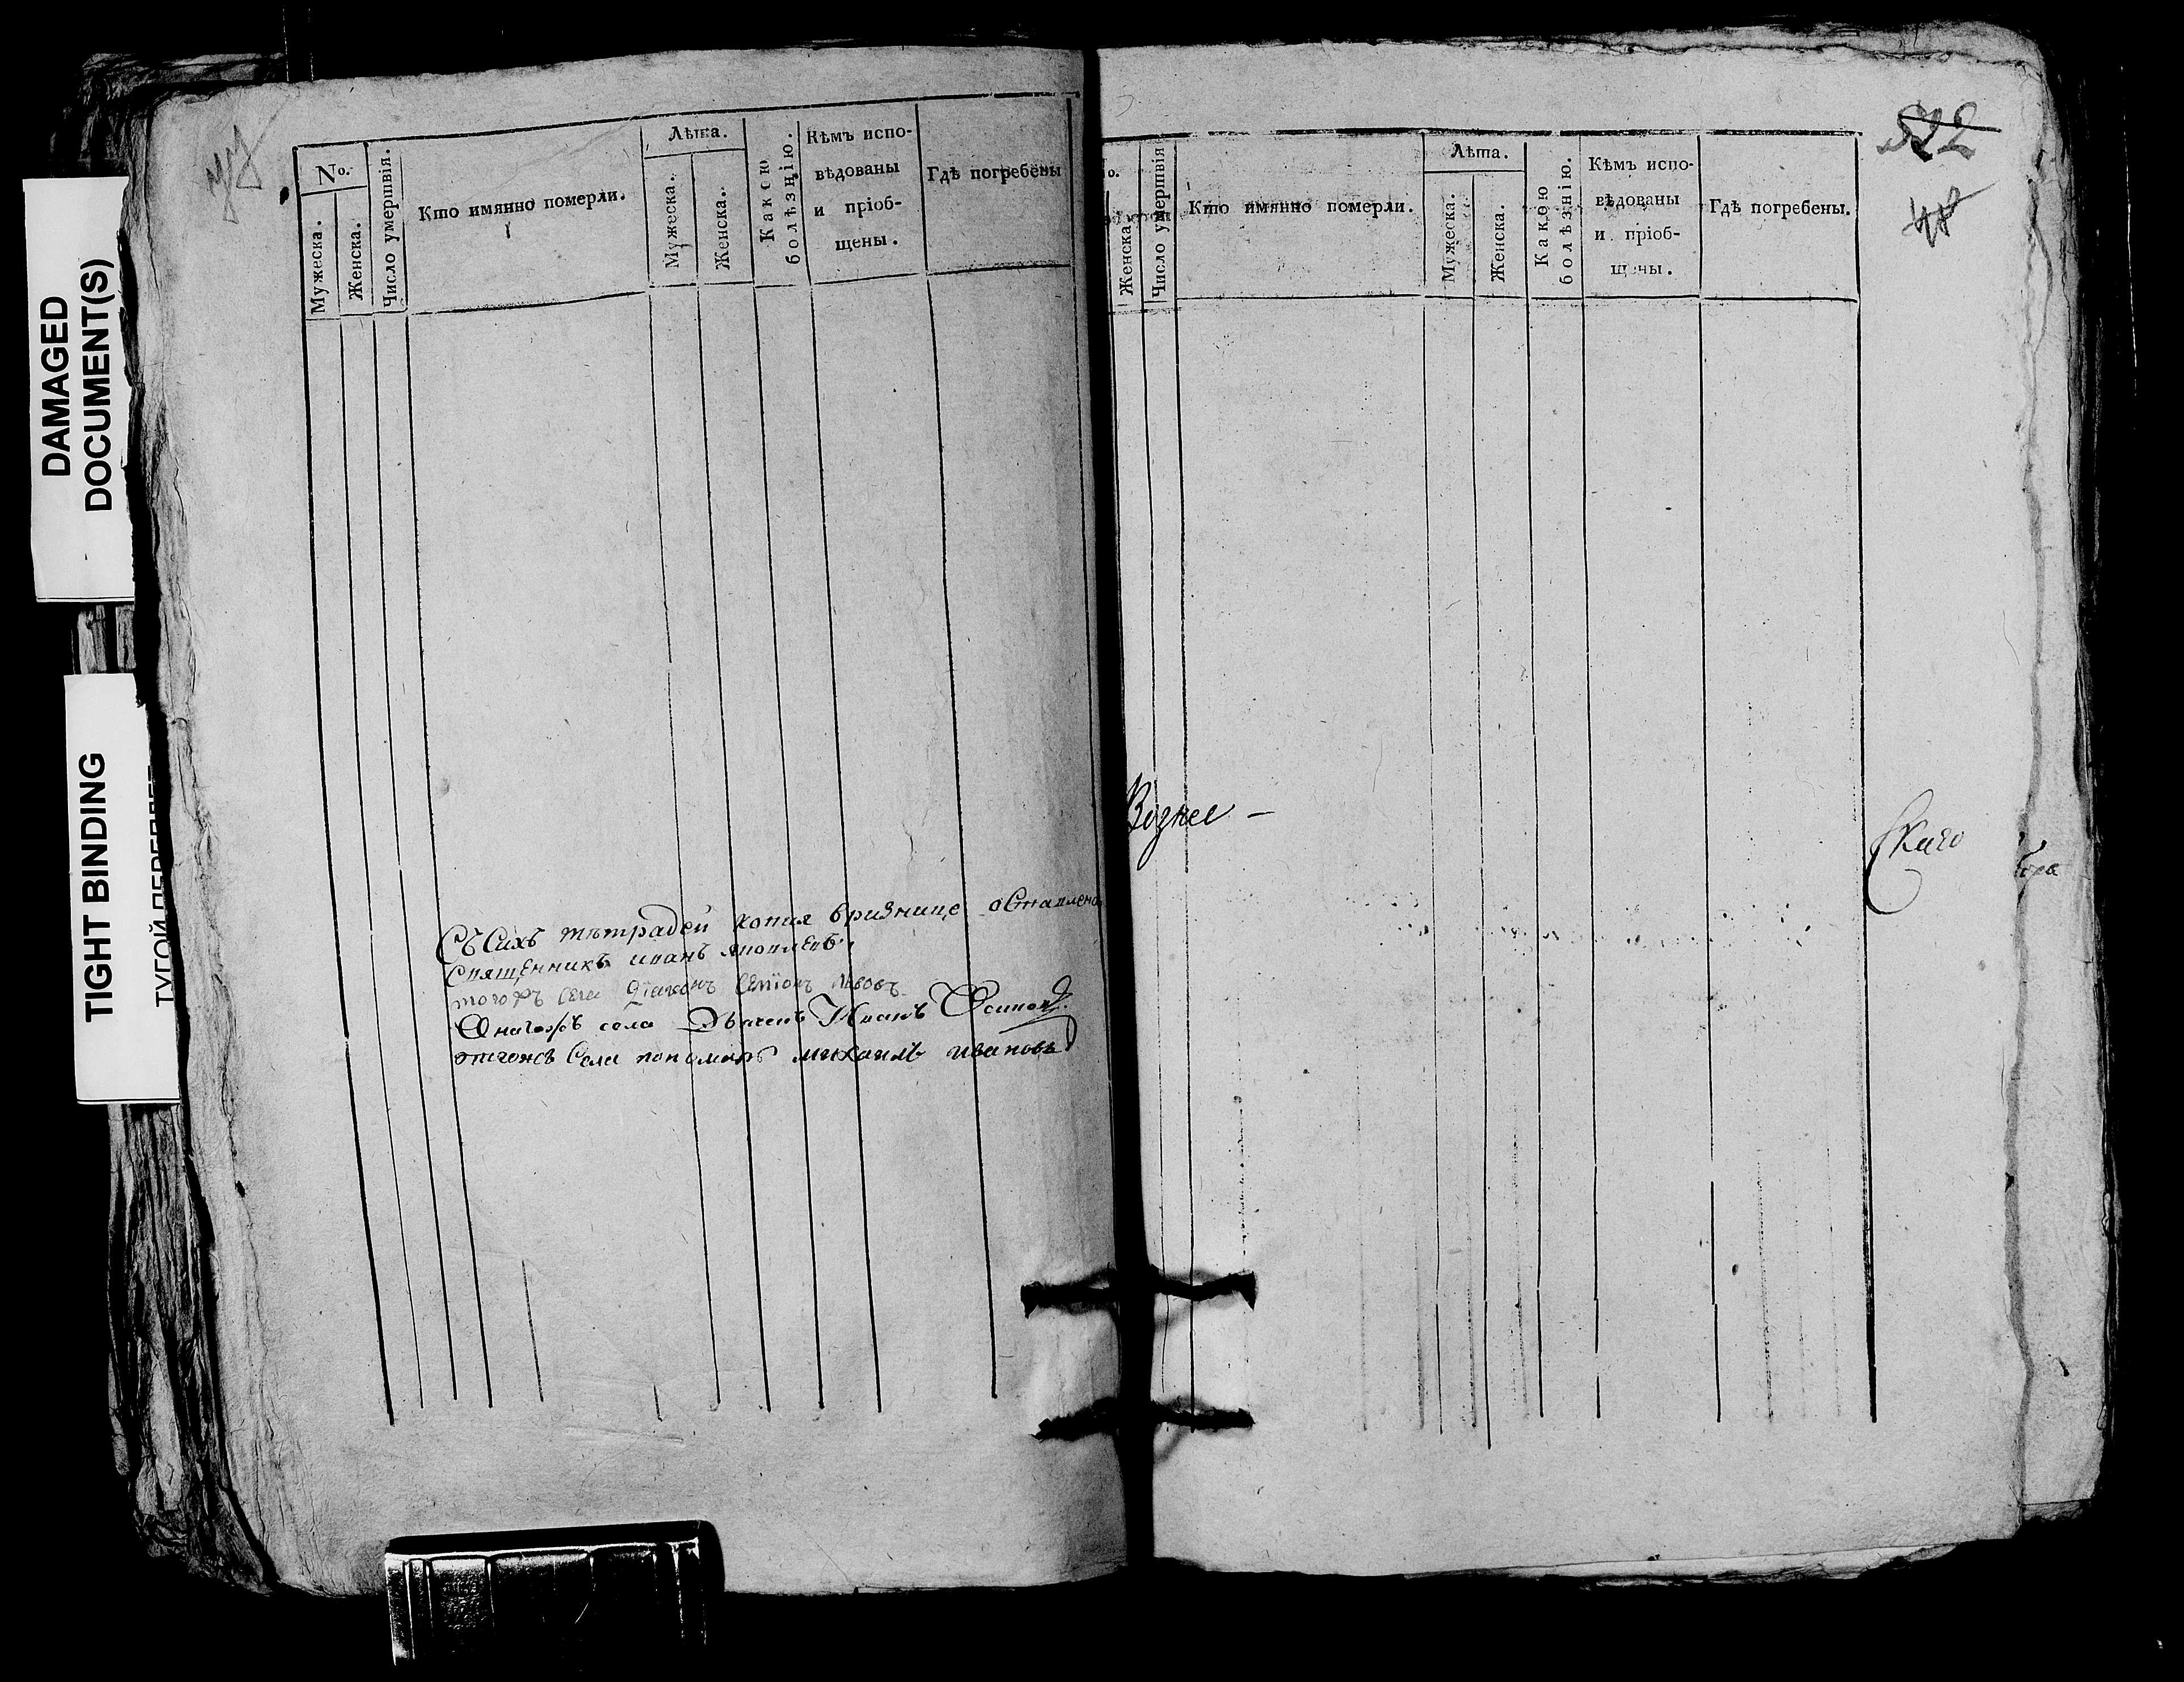 DAMAGED
DOCUMENT(S)
TIGHT BINDING
ТУГОЙ ПЕРЕПЛЕТ
No.
Мужеска.
Женска.
Число умершвія.
Кто имянно померли.
Лѣта.
Мужеска.
Женска.
Какою
болѣзнію.
Кѣмъ испо-
вѣдованы
и пріоб-
щены.
Гдѣ погребены
Съ Сихъ тѣтрадей копия вризнице оставлена
Священникъ иванъ
тогожъ села Діаконъ Симіонъ Львовъ
Оногожъ села Дьячекъ Иванъ Осиповъ
тогожъ Села пономарь михаилъ ивановъ
522
48
о.
Женска.
Число умершвія
Кто имянно померли.
Лѣта.
Мужеска.
Женска.
Какою
болѣзнію.
Кѣмъ испо-
вѣдованы
и пріоб-
щены.
Гдѣ погребены.
Вознес -
скаго